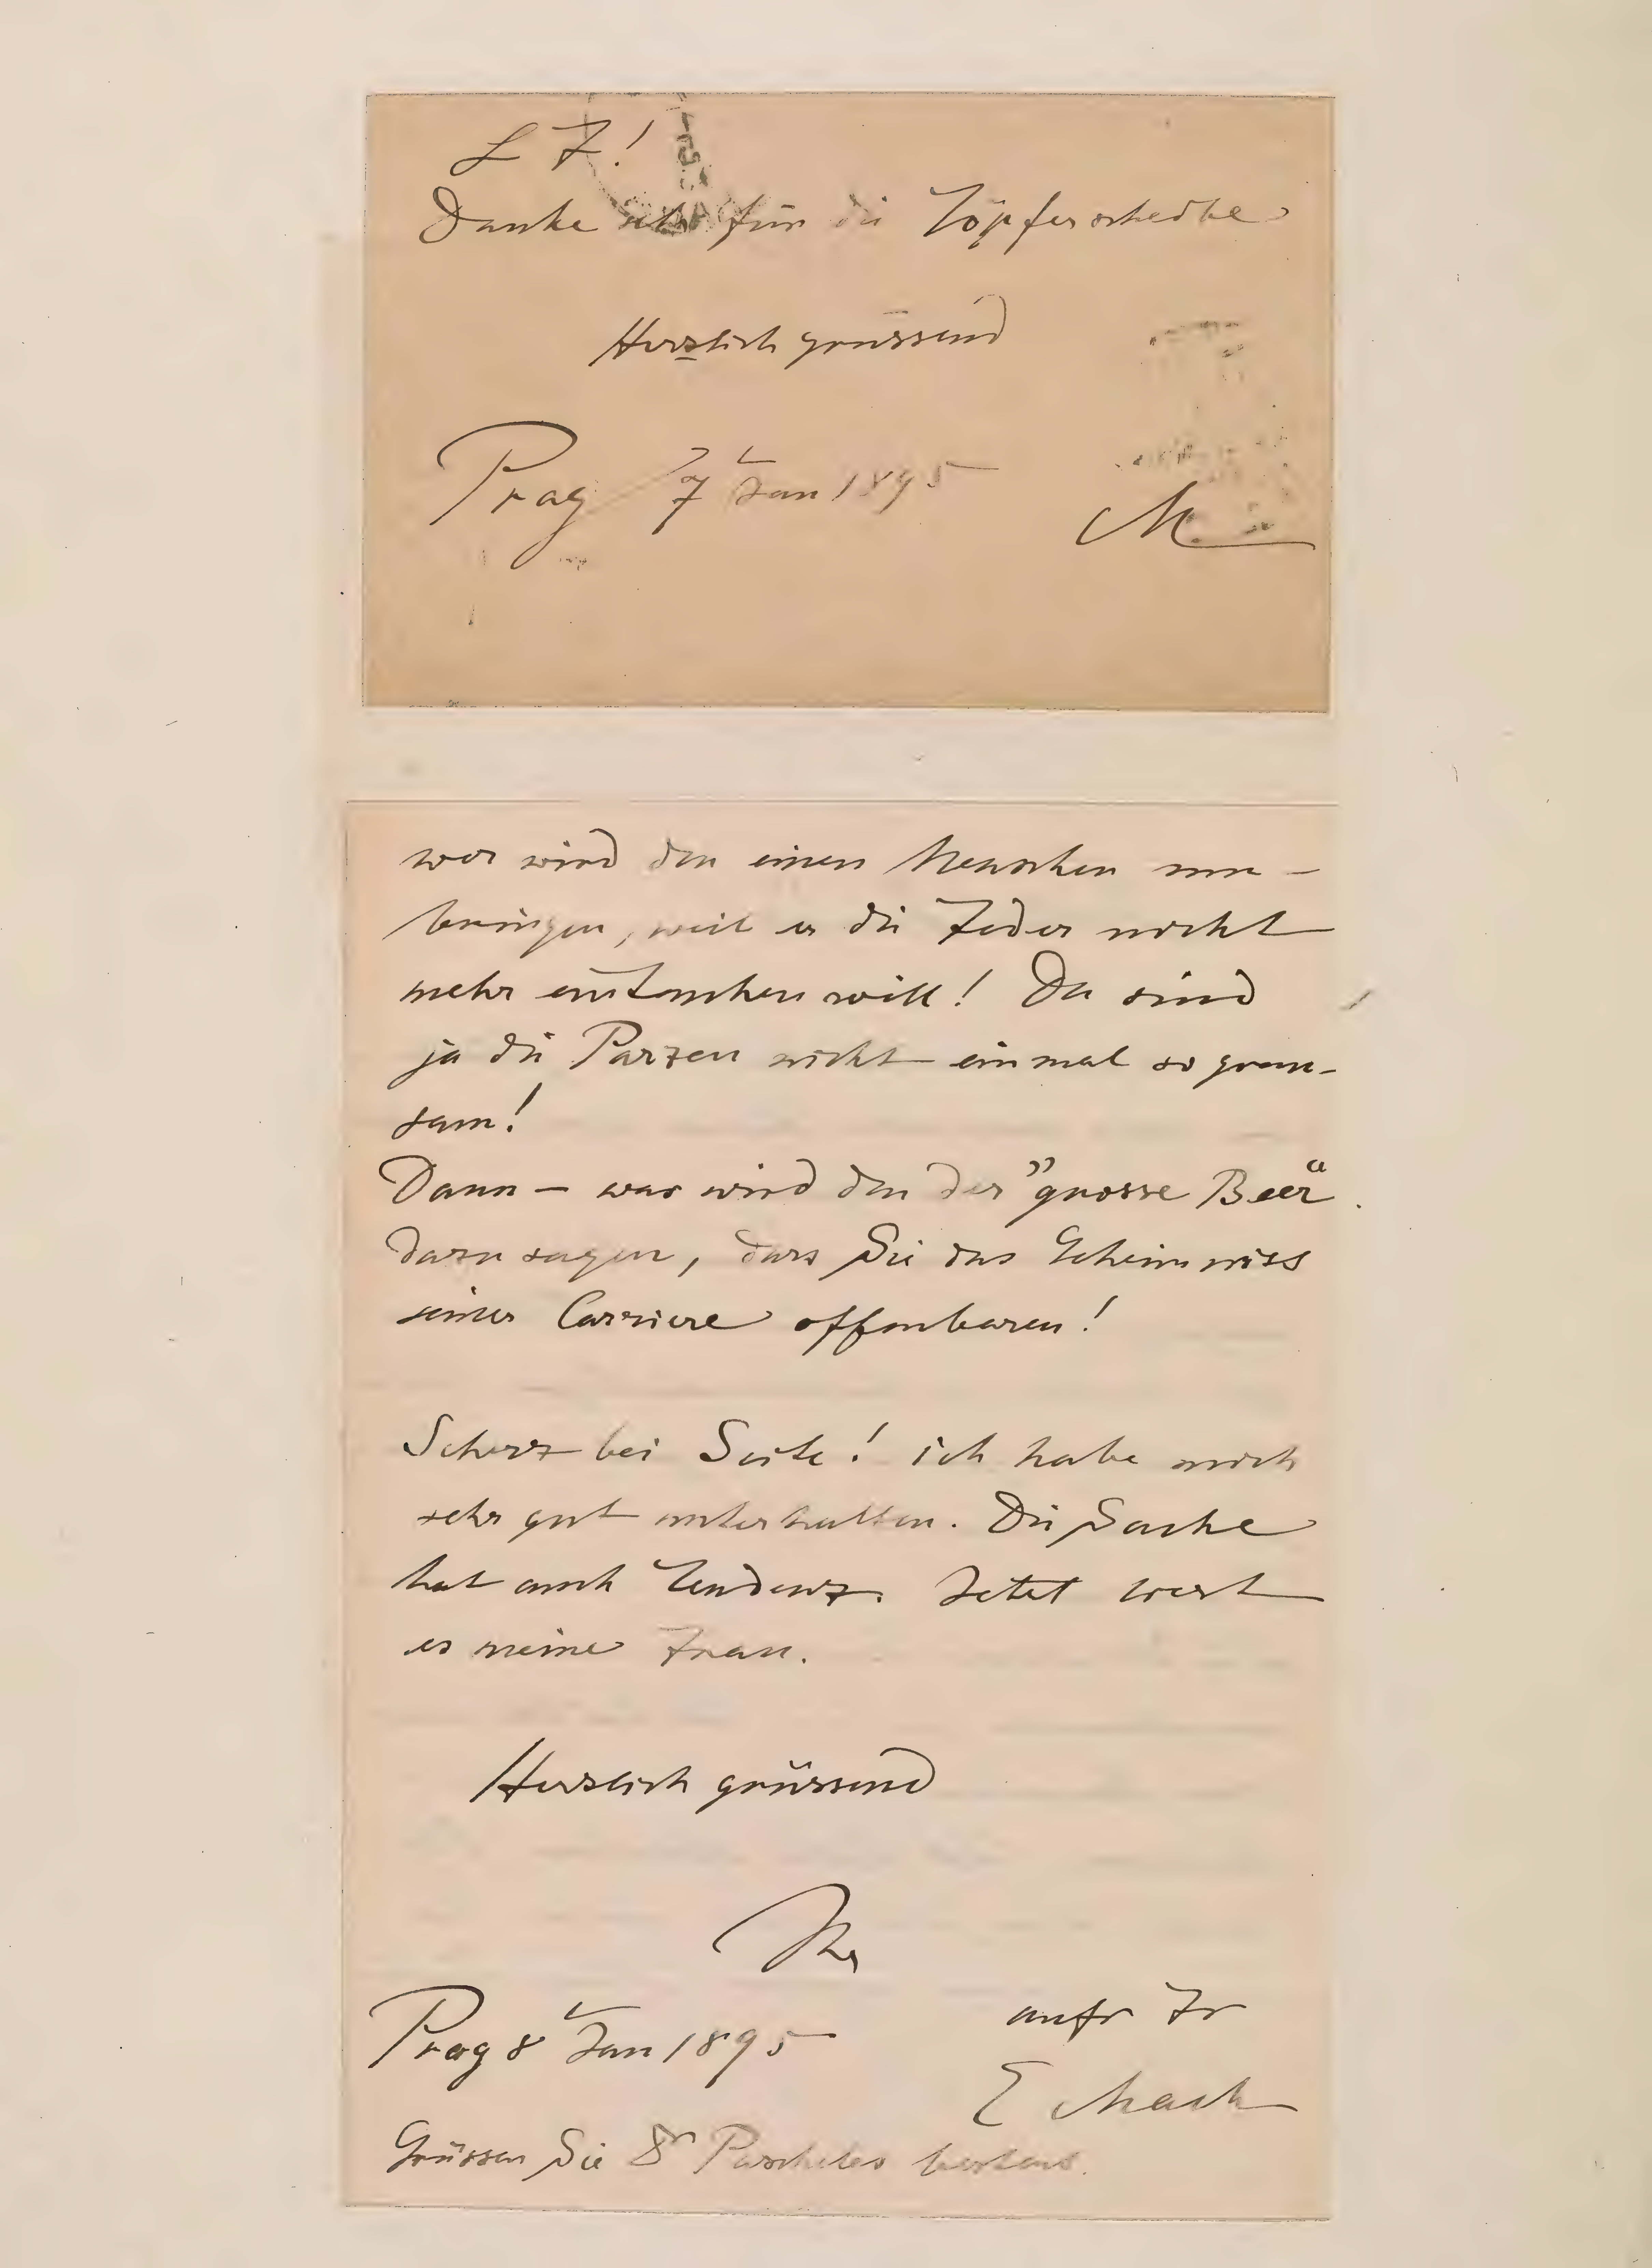 L F!
Danke sehr für die Töpferscheibe
Herzlich grüssend
Prag 7 Jan 1895
M
wer wird den einen Menschen um-
bringen, weil er die Feder nicht
mehr eintauchen will! Da sind
ja die Parzen nicht einmal so grau-
sam!
Dann – was wird den der "grosse Beer"
dazu sagen, dass Sie das Geheimniss
seiner Carriere offenbaren!
Scherz bei Seite! ich habe mich
sehr gut unterhalten. Die Sache
hat auch Tendenz. Jetzt liest
es meine Frau.
Herzlich grüssend
Ihr
Prag 8 Jan 1895
aufr Fr
E Mach
Grüssen Sie Dr Pascheles bestens.